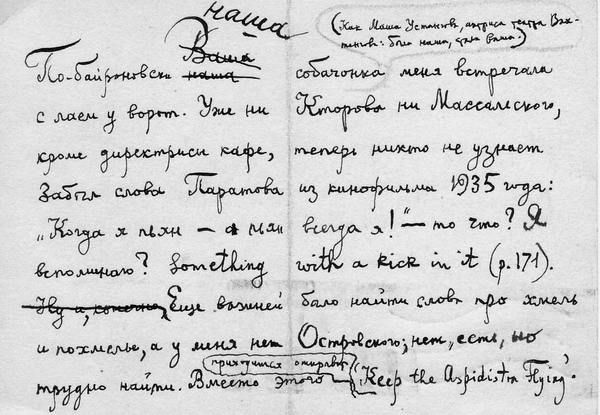 наша
(Как Маша актриса театра Вах-
тангова: была наша, Ваша.)
Ваша
По-байроновски наша собачонка меня встречала
с лаем у ворот. Уже ни Кторова ни Массальского,
кроме директрисы кафе, теперь никто не узнает
Забыл слова Паратова из кинофильма 1935 года:
„Когда я пьян — а пьян всегда я!“ — то что? Я
вспоминаю? Something with a kick in it (p. 171).
Ну а, конечно, Еще важней было найти слова про хмель
и похмелье, а у меня нет Островского; нет, есть, но
приходится
трудно найти. Вместо этого Keep the Aspidistra Flying.